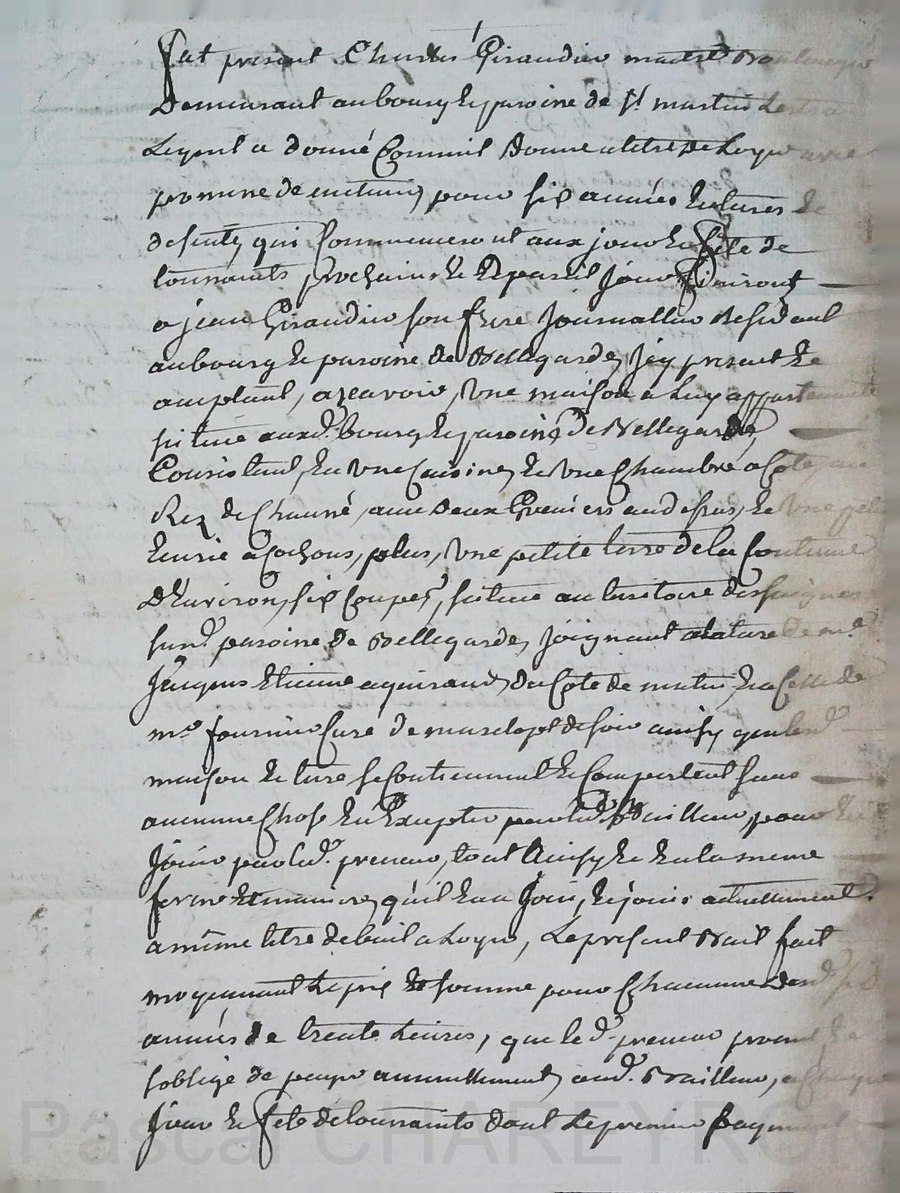 fut present Charles Giraudier maitre
Demeurant au bourg et paroine de St martin
Lequel a donné Comme il donne a titre de Loyer avec
promene de maintenir, pour six années entieres et
desuite, qui Commenceront aux jour et fête de
tounaints prochaine et a pareil jour finiront
a jean Giraudier son frere journallier Residant
au bourg et paroine de Bellegarde, jcy present et
aceptant, a sçavoir, Une maison a Luy appartenante
situee aud. bourg et paroine de Bellegarde,
Consistant, En Une Cuisine, et Une Chambre a Coté, au
Rez de Chaunée, avec deux Greniers au desus, et Une petite
Ecurie a Cochons, plus, Une petite terre de la Contenue
D'Environ, six Coupes, situee au territoire des
susd. paroine de Bellegarde, joignant a la terre de mr.
jacques Etienne aguiraud, du Coté de matin, Et a Celle de
mr. fournier Curé de marclopt de soir ainsy que lesd.
maison et terre se Contiennent et Comportent sans
aucune Chose En Excepter par led. Bailleur, pour En
jouir par led. preneur, tout Ainsy et En la meme
forme et maniere, qu'il En a joui, et joui actuellement
a même titre de bail a Loyer, Le present Bail fait
moyennant Le prix et somme pour Chacune desd. six
années de trente Livres, que le d. preneur promet et
s'oblige de payer annuellement, aud. Bailleur, a Chaque
jour et fete de tounaints dont Le premier payement
Pascal CHAREYRON